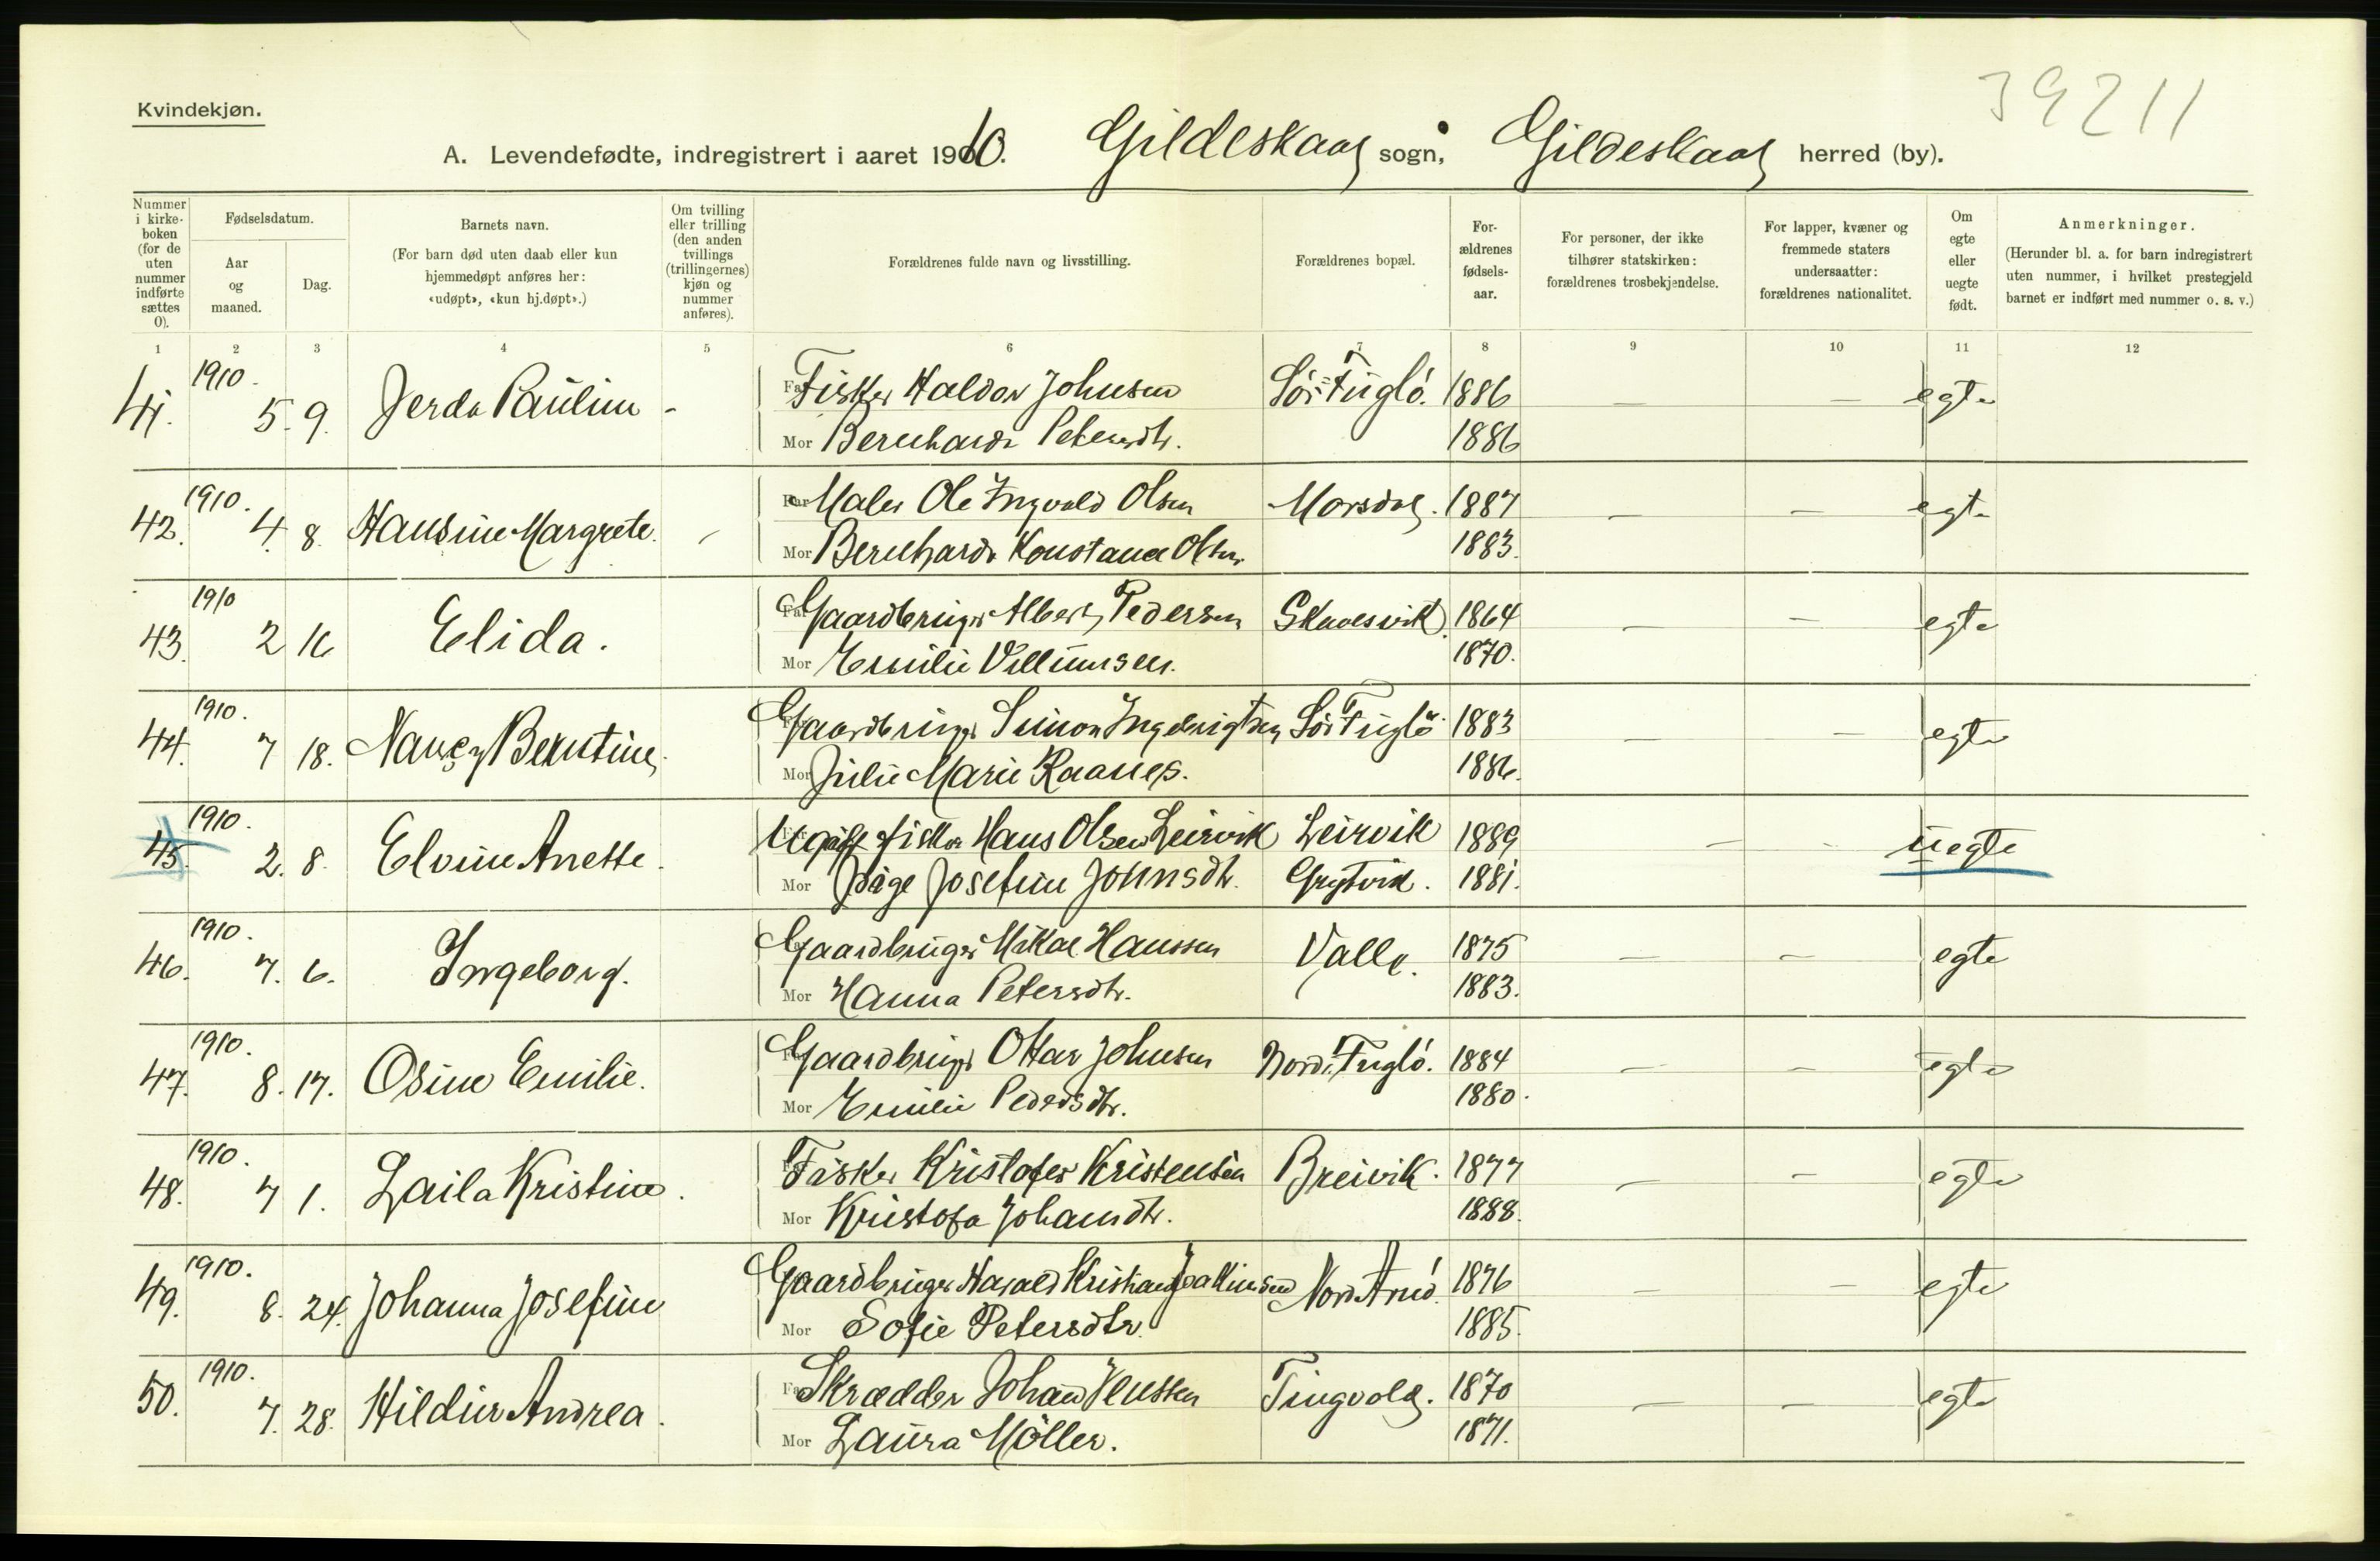 39211
Kvindekjøn.
A. Levendefødte, indregistrert i aaret 1910. Gildeskaal sogn, Gildeskaal herred (by).
Nummer i kirkeboken (for de uten nummer indførte sættes 0).
Fødselsdatum.
Aar og maaned.
Dag.
Barnets navn.
(For barn død uten daab eller kun hjemmedøpt anføres her: «udøpt», «kun hj.døpt».)
Om tvilling eller trilling (den anden tvillings (trillingernes) kjøn og nummer anføres).
Forældrenes fulde navn og livsstilling.
Forældrenes bopæl.
Forældrenes fødselsaar.
For personer, der ikke tilhører statskirken: forældrenes trosbekjendelse.
For lapper, kvæner og fremmede staters undersaatter: forældrenes nationalitet.
Om egte eller uegte født.
Anmerkninger.
(Herunder bl. a. for barn indregistrert uten nummer, i hvilket prestegjeld barnet er indført med nummer o. s. v.)
1 2 3 4 5 6 7 8 9 10 11 12
41. 1910. 5. 9. Jerda Pauline - Far Fisker Haldor Johnsen Sør-Fuglö. 1886 — — egte
Mor Bernharda Petersdtr. 1886
42. 1910. 4. 8. Hansine Margrete. - Far Maler Ole Ingvald Olsen Morsdal. 1887 — — egte
Mor Bernharda Konstance Olsen 1883.
43. 1910 2 16 Elida. Far Gaardbruger Albert Pedersen Skavesvik. 1864 — — egte
Mor Emilie Villumsen. 1870.
44. 1910. 7 18. Nancy Berntine. Far Gaardbruger Simon Ingebrigtsen Sör Fuglö. 1883 — — egte
Mor Julie Marie Raanes. 1886.
45. 1910. 2. 8. Elvine Anette. Far Ugift fisker Hans Olsen Leirvik Leirvik 1889 — - uegte
Mor Pige Josefine Johnsdtr. Grytvik. 1881.
46. 1910. 7. 6. Ingeborg. Far Gaardbruger Mikal Hanssen Valle. 1875 — — egte
Mor Hanna Petersdtr. 1883.
47. 1910. 8. 17. Osine Emilie. Far Gaardbruger Ottar Johnsen Nord-Fuglö. 1884 — — egte
Mor Emilie Pedersdtr. 1880.
48. 1910. 7 1. Laila Kristine. Far Fisker Kristofer Kristensen Breivik. 1877 — — egte
Mor Kristofa Johansdtr. 1888.
49. 1910. 8. 24. Johanna Josefine Far Gaardbruger Harald Kristian Joakimsen Nord Arnö. 1876 — — egte
Mor Sofie Petersdtr. 1885.
50. 1910. 7. 28. Hildur Andrea. Far Skrædder Johan Jenssen Tingvold. 1870 — — egte
Mor Laura Möller. 1871.